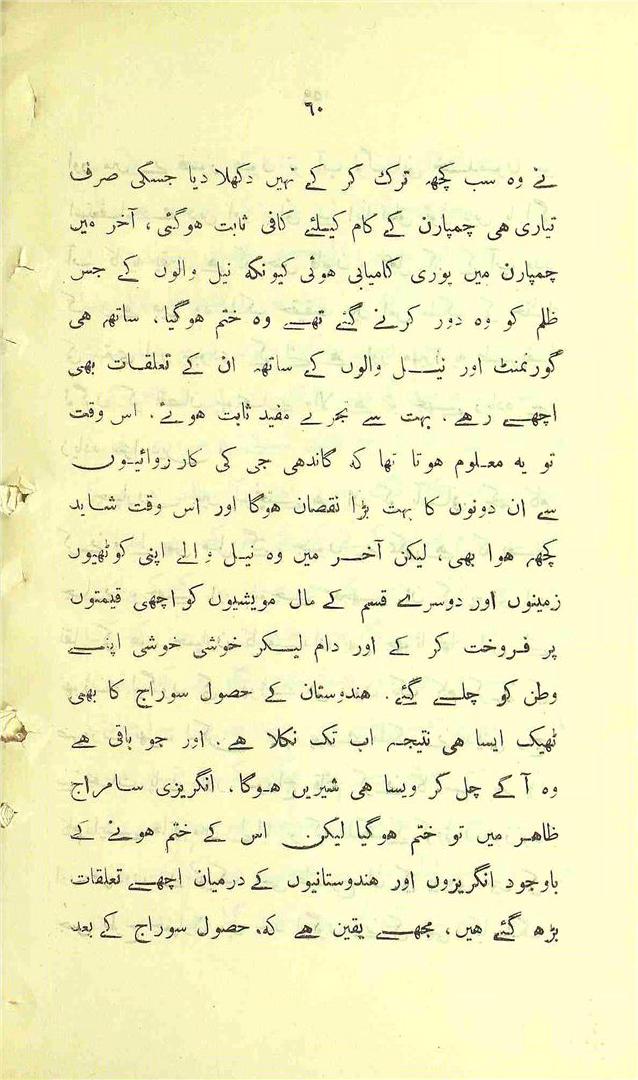 ٦٠
نے وہ سب کچھ ترک کر کے نہیں دکھلا دیا جسکی صرف
تیاری ھی چمپارن کے کام کیلئے کافی ثابت ہوگئی، آخر میں
چمپارن میں پوری کامیابی ہوئی کیونکہ نیل والوں کے جس
ظلم کو وہ دور کرنے گئے تھے وہ ختم ہوگیا، ساتھ ھی
گورنمنٹ اور نیل والوں کے ساتھ ان کے تعلقات بھی
اچھے رہے۔ بہت سے تجربے مفید ثابت ہوئے، اس وقت
تو یہ معلوم ہوتا تھا کہ گاندھی جی کی کارروائیوں
سے ان دونوں کا بہت بڑا نقصان ہوگا اور اس وقت شاید
کچھ ہوا بھی، لیکن آخر میں وہ نیل والے اپنی کوٹھیوں
زمینوں اور دوسرے قسم کے مال مویشیوں کو اچھی قیمتوں
پر فروخت کر کے اور دام لیکر خوشی خوشی اپنے
وطن کو چلے گئے۔ ھندوستان کے حصول سوراج کا بھی
ٹھیک ایسا ھی نتیجہ اب تک نکلا ھے۔ اور جو باقی ھے
وہ آگے چل کر ویسا ھی شیریں ہوگا، انگریزی سامراج
ظاہر میں تو ختم ہوگیا لیکن۔ اس کے ختم ہونے کے
باوجود انگریزوں اور ھندوستانیوں کے درمیان اچھے تعلقات
بڑھ گئے ھیں، مجھے یقین ھے کہ، حصول سوراج کے بعد